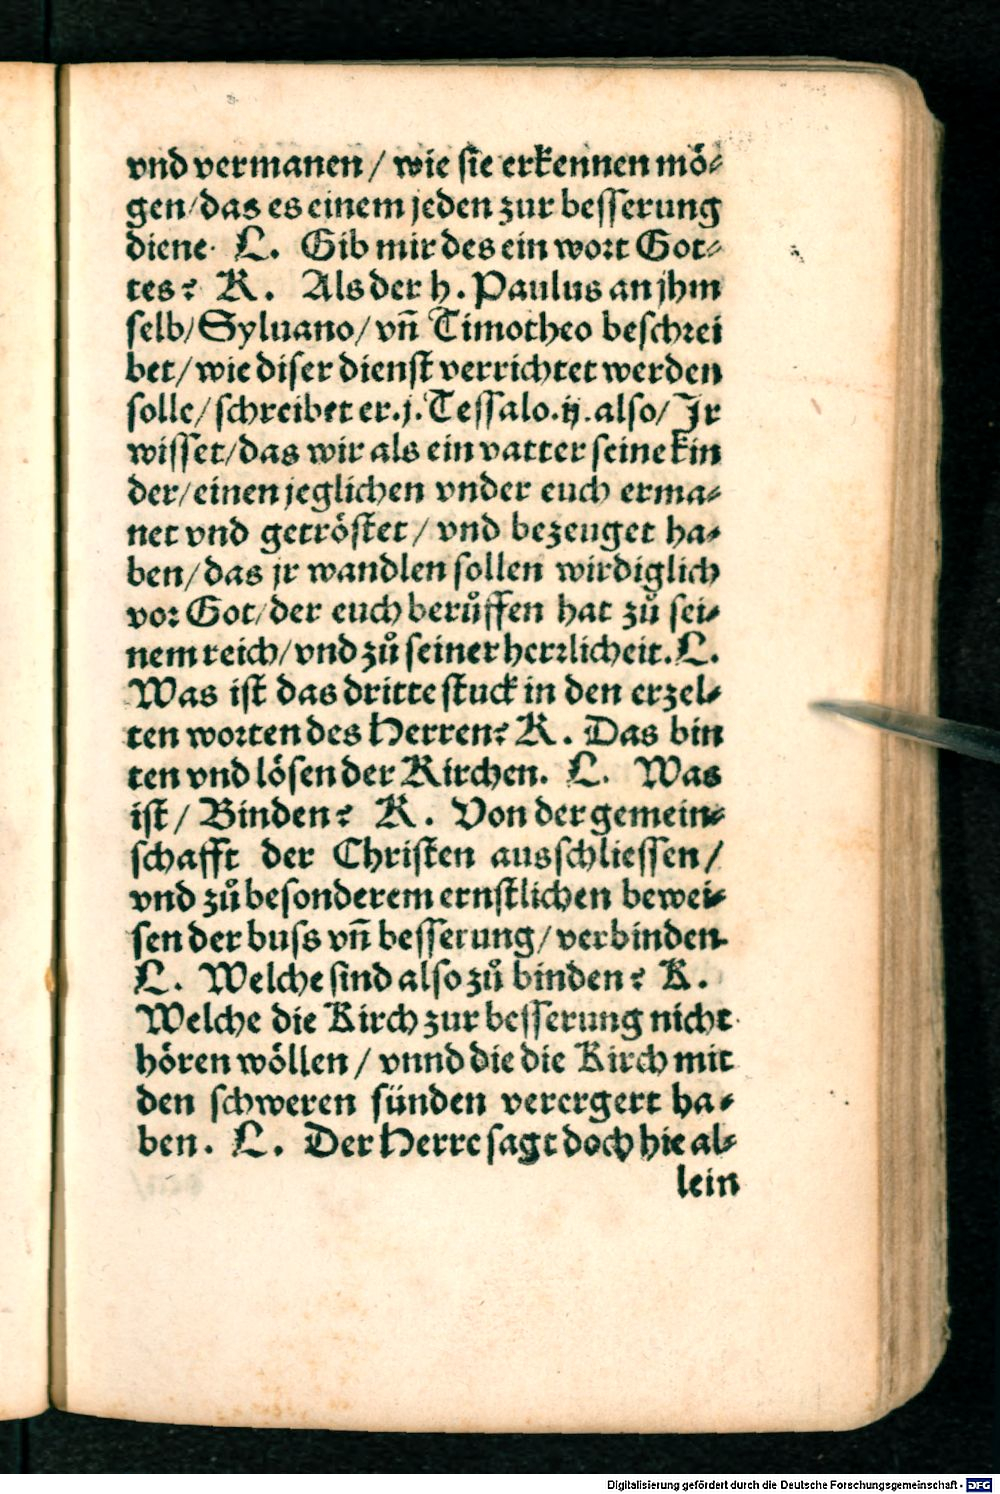 vnd vermanen / wie sie erkennen mö⸗
gen/das es einem jeden zur besserung
diene. L. Gib mir des ein wort Got⸗
tes? K. Als der h. Paulus an jhm
selb/Syluano/vñ Timotheo beschrei
bet/wie diser dienst verrichtet werden
solle/schreibet er.j.Tessalo.ij.also/Jr
wisset/das wir als ein vatter seine kin
der/einen jeglichen vnder euch erma⸗
net vnd getröstet / vnd bezeuget ha⸗
ben/das jr wandlen sollen wirdiglich
vor Got/der euch berůffen hat zů sei⸗
nem reich/vnd zů seiner herrlicheit. L.
Was ist das dritte stuck in den erzel⸗
ten worten des Herren? K. Das bin
ten vnd lösen der Kirchen. L. Was
ist/ Binden? K. Von der gemein⸗
schafft der Christen ausschliessen/
vnd zů besonderem ernstlichen bewei⸗
sen der buss vñ besserung/verbinden.
L. Welche sind also zů binden? K.
Welche die Kirch zur besserung nicht
hören wöllen / vnnd die die Kirch mit
den schweren sünden verergert ha⸗
ben. L. Der Herre sagt doch hie al⸗
lein
Digitalisierung gefördert durch die Deutsche Forschungsgemeinschaft - DFG